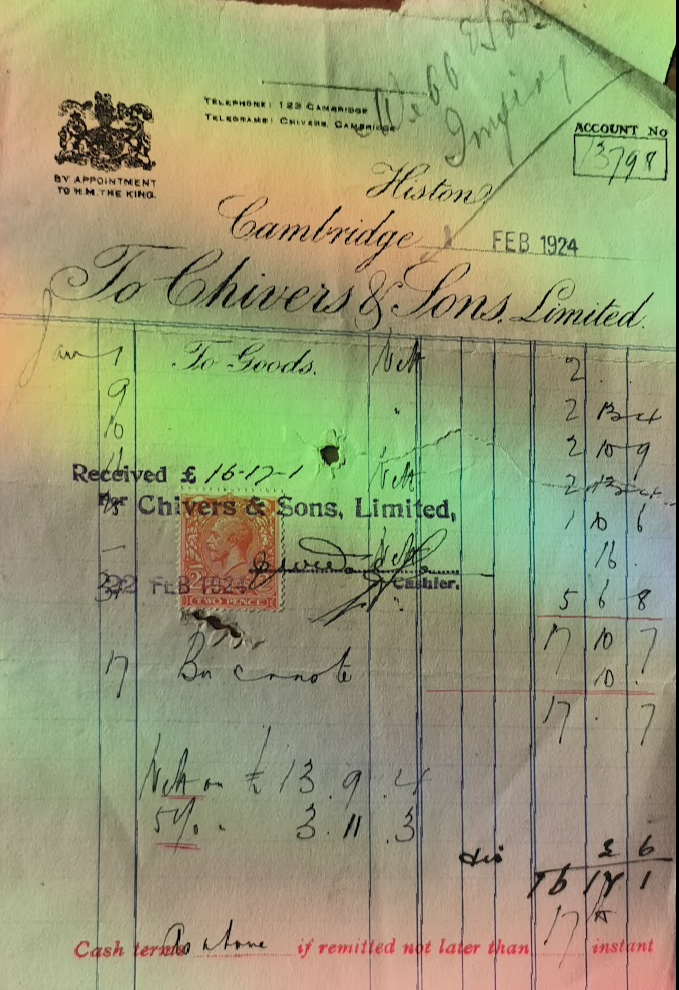 Webb & Son
TELEPHONE: 122 CAMBRIDGE
TELEGRAMS: CHIVERS, CAMBRIDGE
ACCOUNT No
13798
BY APPOINTMENT
TO H.M. THE KING.
Histon,
Cambridge
FEB 1924
To Chivers & Sons, Limited.
Jan 1 To Goods. Nett 2 . .
9 " 2 13 4
10 2 10 9
Nett 2 13 4
Received £ 16-17-1
For Chivers & Sons, Limited,
1 10 6
Nett 16 .
Cashier.
22 FEB 1924
TWO PENCE
31 " 5 6 8
17 10 7
17 By c note 10 .
17 . 7
Nett on £13 . 9 . 4
5% " 3 . 11 . 3
dis 3 6
16 17 1
17
Cash terms As above if remitted not later than instant